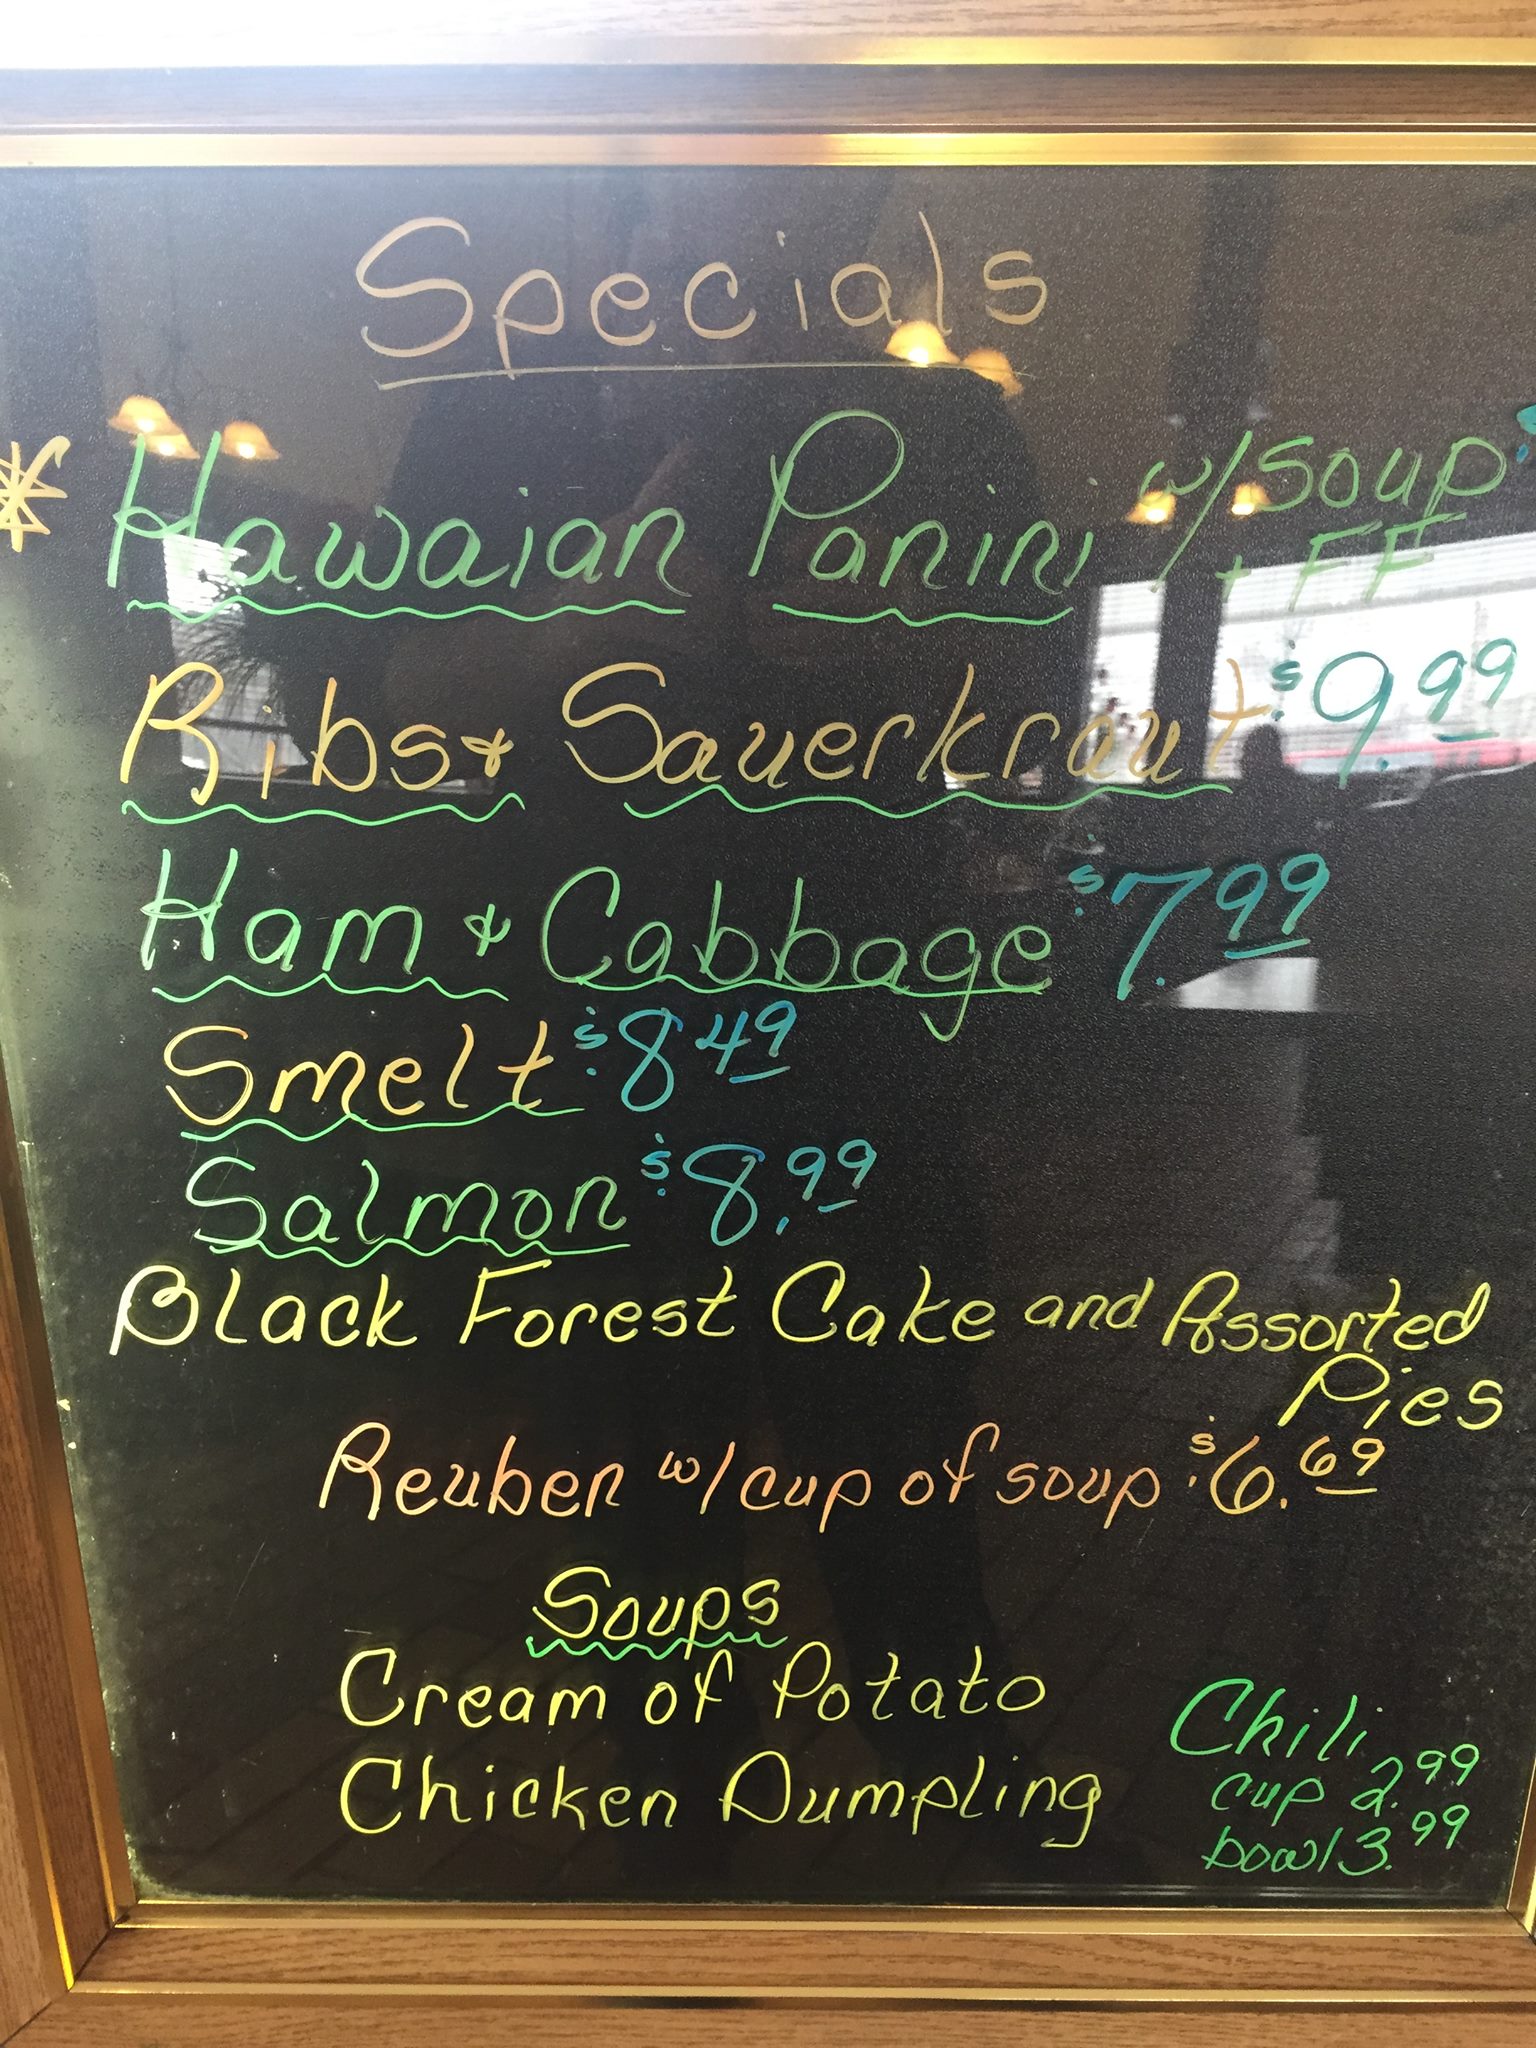 Specials
* Hawaian Panini w/ soup $
+ FF
Ribs & Sauerkraut $9.99
Ham & Cabbage $7.99
Smelt $8 49
Salmon $8.99
Black Forest Cake and Assorted
Pies
Reuben w/ cup of soup $6.69
Soups
Cream of Potato
Chicken Dumpling
Chili
cup 2.99
bowl 3.99